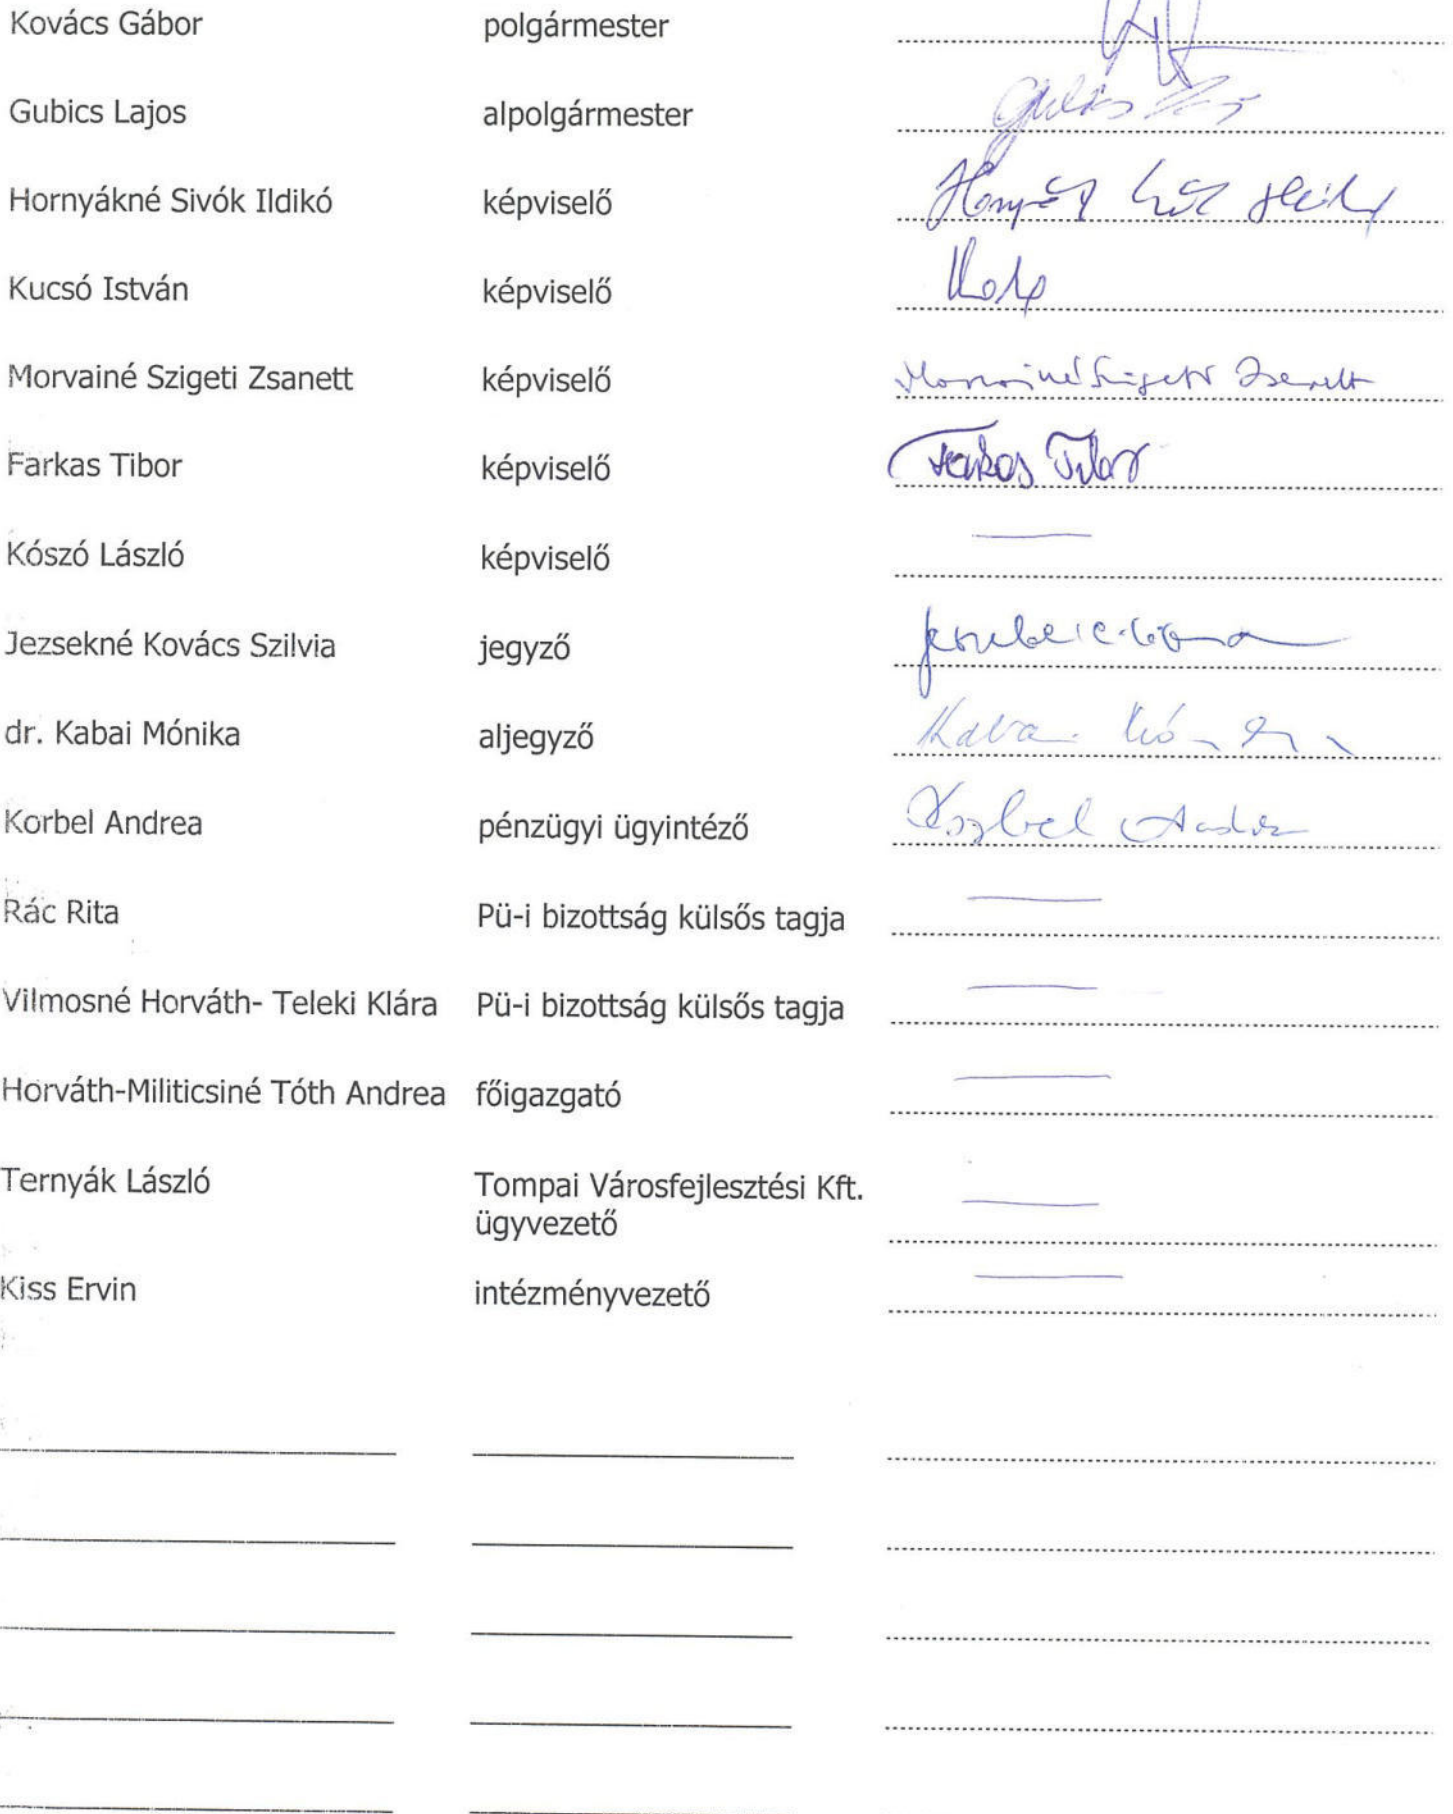 Kovács Gábor polgármester
Gubics Lajos alpolgármester
Hornyákné Sivók Ildikó képviselő
Kucsó István képviselő
Morvainé Szigeti Zsanett képviselő Morvainé Szigeti Zsanett
Farkas Tibor képviselő Farkas Tibor
Kószó László képviselő
Jezsekné Kovács Szilvia jegyző
dr. Kabai Mónika aljegyző
Korbel Andrea pénzügyi ügyintéző Korbel Andrea
Rác Rita Pü-i bizottság külsős tagja
Vilmosné Horváth- Teleki Klára Pü-i bizottság külsős tagja
Horváth-Militicsiné Tóth Andrea főigazgató
Ternyák László Tompai Városfejlesztési Kft.
ügyvezető
Kiss Ervin intézményvezető